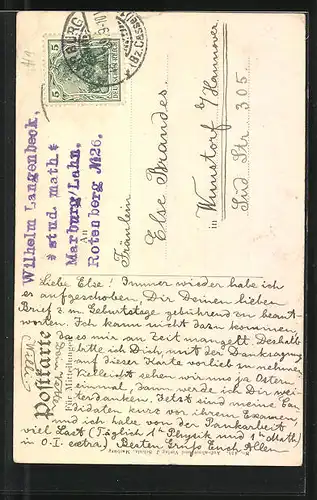 Wilhelm Langenbeck,
* stud. math. *
Marburg/Lahn.
Rotenberg №26.
5
5
DEUTSCHES REICH
(Bz. Cassel)
Fräulein
Else Brandes.
in Wunstorf b/Hannover
Süd Str 305
Postkarte
Für Mitteilungen
Liebe Else! Immer wieder habe ich
es aufgeschoben, Dir Deinen lieben
Brief z. m. Geburtstage gebührend zu beant-
worten. Ich kann nicht dazu kommen,
da es mir an Zeit mangelt. Deshalb
bitte ich Dich, mit der Danksagung
auf dieser Karte vorlieb zu nehmen.
Vielleicht sehen wir uns ja Ostern
einmal, dann werde ich Dir wei-
terdanken. Jetzt sind meine Can-
didaten kurz vor ihrem Examen,
und ich habe von der Paukarbeit
viel Last (Täglich 1h Physik und 1h Math)
in O.I. extra.) Besten Gruß Euch Allen